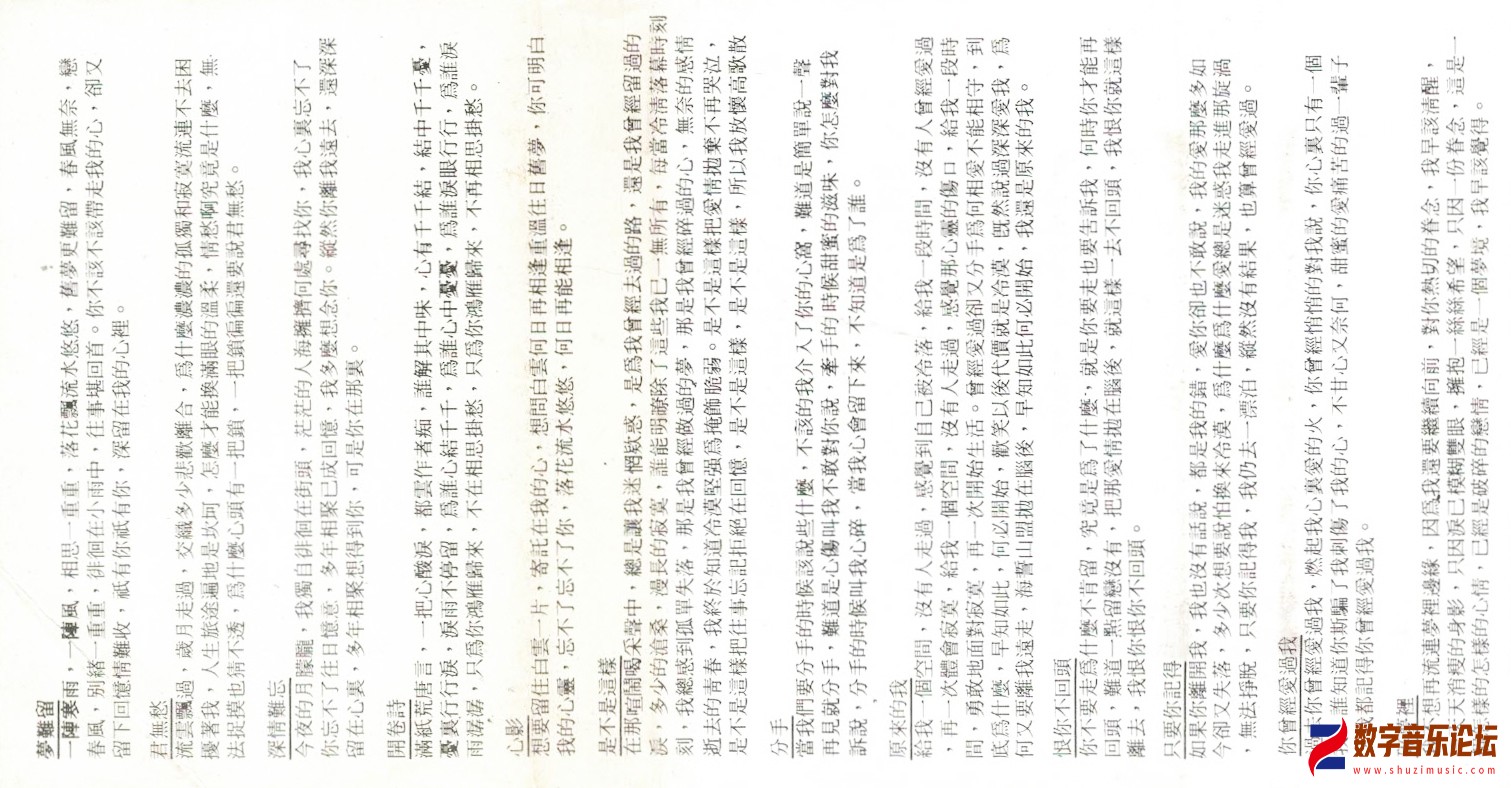 夢難留
一陣寒雨，一陣風，相思一重重，落花飄流水悠悠，舊夢更難留，春風無奈，戀
春風，別緒一重重，徘徊在小雨中，往事堪回首。你不該不該帶走我的心，卻又
留下回憶情難收，祇有你祇有你，深留在我的心裡。
君無愁
流雲飄過，歲月走過，交織多少悲歡離合，為什麼濃濃的孤獨和寂寞流連不去困
擾著我，人生旅途遍地是坎坷，怎麼才能換滿眼的溫柔，情愁啊究竟是什麼，無
法捉摸也猜不透，為什麼心頭有一把鎖，一把鎖偏偏還要說君無愁。
深情難忘
今夜的月朦朧，我獨自徘徊在街頭，茫茫的人海擁擠何處尋找你，我心裏忘不了
你忘不了在往日憶意，多年相聚已成回憶，我多麼想念你。縱然你離我遠去，還深深
留在心裏，多年相聚想得到你，可是你在那裏。
開卷詩
滿紙荒唐言，一把心酸淚，都雲作者痴，誰解其中味，心有千千結，結中千千憂，
憂裏行行淚，淚雨不停留，為誰心結千千，為誰心中憂憂，為誰淚眼行行，為誰淚
雨潺潺，只為你鴻雁歸來，不在相思掛愁，只為你鴻雁歸來，不再相思掛愁。
心影
想要留住白雲一片，寄託在我的心，想問白雲何日再相逢重溫往日舊夢，你可明白
我的心靈，忘不了忘不了你，落花流水悠悠，何日再能相逢。
是不是這樣
在那喧鬧喝采聲中，總是讓我迷惘欵惑，是為我曾經去過的路，還是我曾經留過的
淚，多少的滄桑，漫長的寂寞，誰能明瞭除了這些我已一無所有，每當冷清落幕時刻
刻，我總感到孤單失落，那是我曾經做過的夢，那是我曾經碎過的心，無奈的感情
逝去的青春，我終於知道冷漠堅强為掩飾脆弱。是不是這樣把愛情拋棄不再哭泣，
是不是這樣把往事忘記拒絕在回憶，是不是這樣，是不是這樣，所以我放懷高歌散
分手
當我們要分手的時候該說些什麼，不該的我介入了你的心窩，難道是簡單說一聲
再見就分手，難道是心傷叫我不敢對你說，牽手的時候甜蜜的滋味，你怎麼對我
訴說，分手的時候叫我心碎，當我心會留下來，不知道是為了誰。
原來的我
給我一個空間，沒有人走過，感覺到自己被冷落，給我一段時間，沒有人曾經愛過
，再一次體會寂寞，給我一個空間，沒有人走過，感覺那心靈的傷口，給我一段時
間，勇敢地面對寂寞，再一次開始生活。曾經愛過卻又分手為何相愛不能相守，到
底為什麼，早知如此，何必開始，歡笑以後代價就是冷漠，既然說過深深愛我，為
何又要離我遠走，海誓山盟拋在腦後，早知如此何必開始，我還是原來的我。
恨你不回頭
你不要走為什麼不肯留，究竟是為了什麼，就是你要走也要告訴我，何時你才能再
回頭，難道一點留戀沒有，把那愛情拋在腦後，就這樣一去不回頭，我恨你就這樣
離去，我恨你恨你不回頭。
只要你記得
如果你離開我，我也沒有話說，都是我的錯，愛你卻也不敢說，我的愛那麼多如
今卻又失落，多少次想要說怕換來冷漠，為什麼為什麼愛總是迷惑我走進那旋渦
，無法掙脫，只要你記得我，我仍去一漂泊，縱然沒有結果，也算曾經愛過。
你曾經愛過我
過去你曾經愛過我，燃起我心裏愛的火，你曾經悄悄的對我說，你心裏只有一個
，誰知道你斯騙了我刺傷了我的心，不甘心又奈何，甜蜜的愛痛苦的過一輩子
我都記得你曾經愛過我。
想再流連夢裡邊緣，因為我還要繼續向前，對你熱切的眷念，我早該清醒，
天消瘦的身影，只因淚已模糊雙眼，擁抱一絲絲希望，只因一份眷念，這是一
怎樣的怎樣的心情，已經是破碎的戀情，已經是一個夢境，我早該覺得。
数字音乐论坛
www.shuzimusic.com